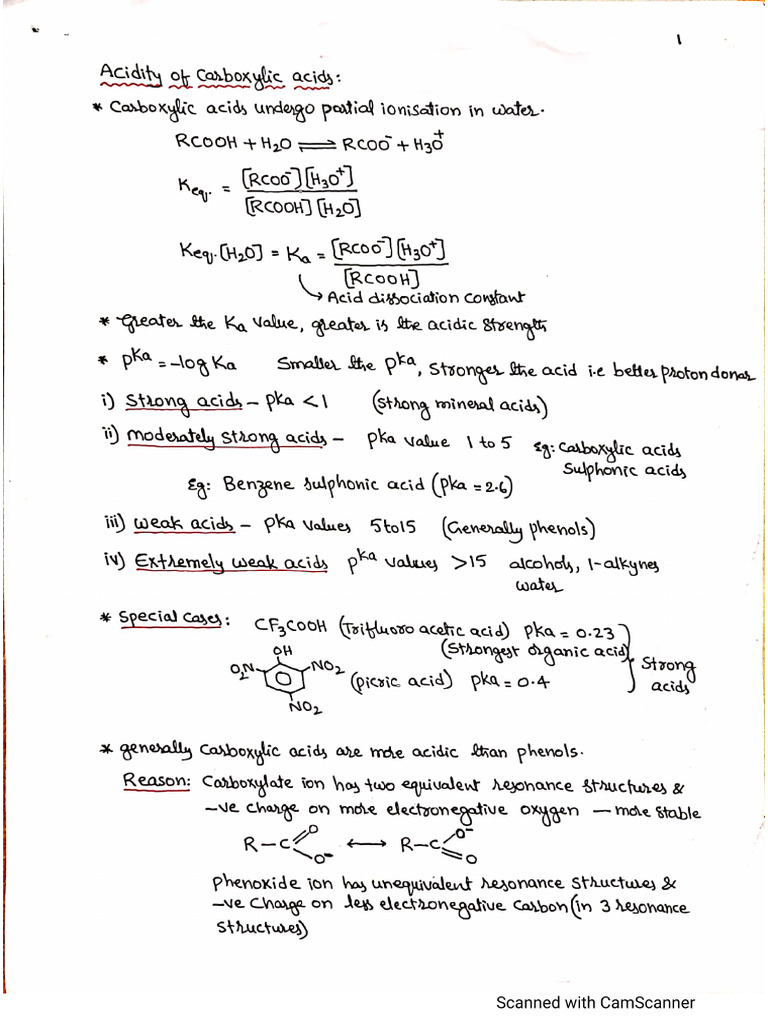 1
Acidity of Carboxylic acids:
* Carboxylic acids undergo partial ionisation in water.
RCOOH + H₂O ⇌ RCOO⁻ + H₃O⁺
Keq. = [RCOO⁻][H₃O⁺] / [RCOOH][H₂O]
Keq.[H₂O] = Ka = [RCOO⁻][H₃O⁺] / [RCOOH]
↳ Acid dissociation constant
* Greater the Ka value, greater is the acidic strength
* pKa = -log Ka Smaller the pKa, stronger the acid i.e better proton donar
i) Strong acids – pka < 1 (strong mineral acids)
ii) moderately strong acids – pka value 1 to 5 Eg: Carboxylic acids
Sulphonic acids
Eg: Benzene sulphonic acid (pka = 2.6)
iii) weak acids – pka values 5to15 (Generally phenols)
iv) Extremely weak acids pKa values >15 alcohols, 1-alkynes
water
* Special cases: CF₃COOH (Trifluoro acetic acid) pka = 0.23
(Strongest organic acid)
OH
O₂N NO₂ (picric acid) pka = 0.4 Strong
acids
NO₂
* generally Carboxylic acids are more acidic than phenols.
Reason: Carboxylate ion has two equivalent resonance structures &
-ve charge on more electronegative oxygen — more stable
R–C O O⁻ ⟷ R–C O⁻ O
Phenoxide ion has unequivalent resonance structures &
-ve Charge on less electronegative Carbon (in 3 resonance
structures)
Scanned with CamScanner